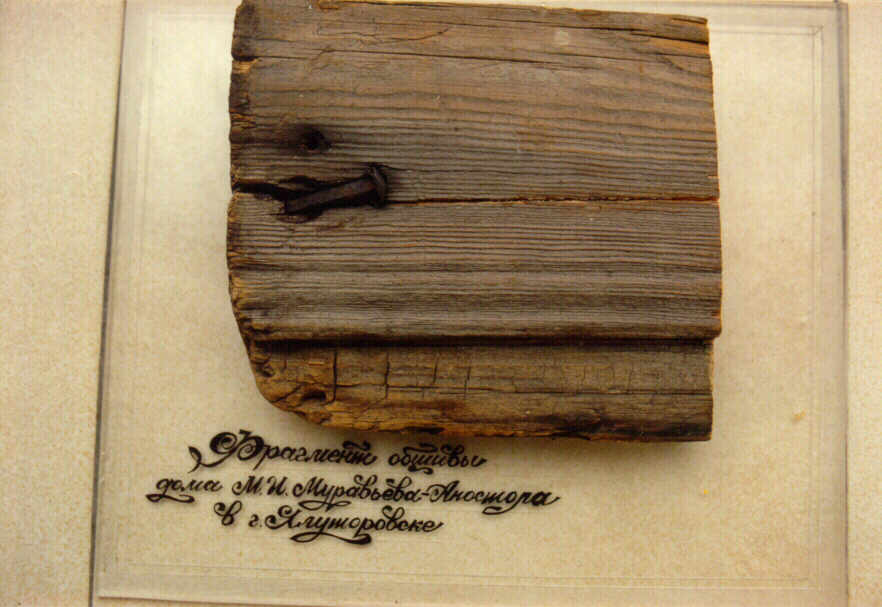 Фрагмент обшивы
дома М.И. Муравьёва-Апостола
в г. Ялуторовске